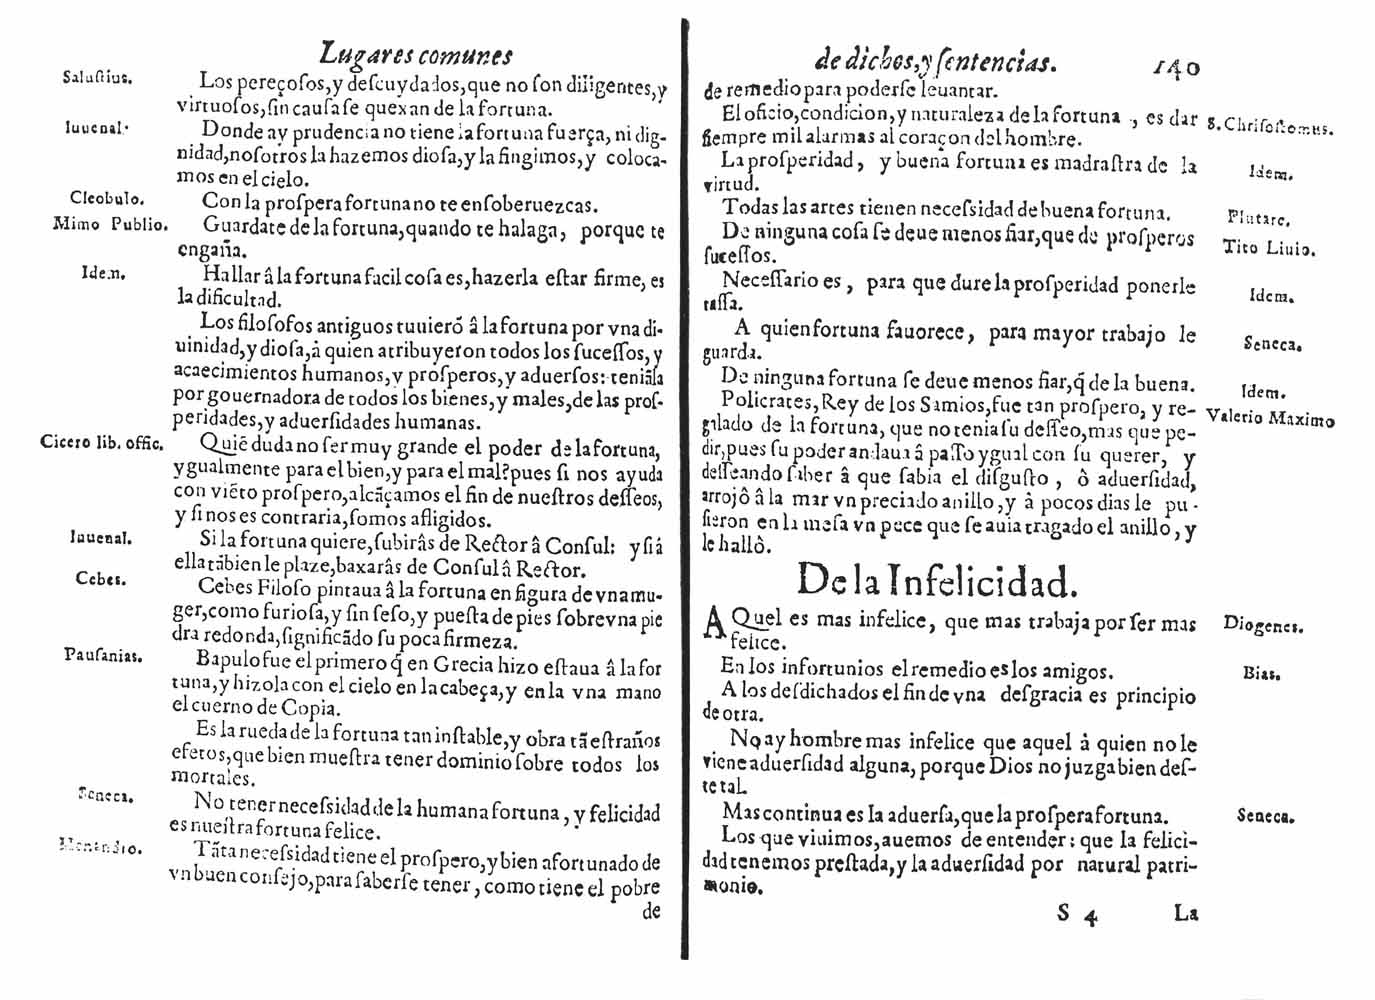 Lugares comunes
Saluſtius. Los pereçoſos, y deſcuydados, que no ſon diligentes, y
virtuoſos, ſin cauſa ſe quexan de la fortuna.
Iuuenal. Donde ay prudencia no tiene la fortuna fuerça, ni dig-
nidad, noſotros la hazemos dioſa, y la fingimos, y coloca-
mos en el cielo.
Cleobulo. Con la proſpera fortuna no te enſoberuezcas.
Mimo Publio. Guardate de la fortuna, quando te halaga, porque te
engaña.
Idem. Hallar â la fortuna facil coſa es, hazerla eſtar firme, es
la dificultad.
Los filoſofos antiguos tuuierõ â la fortuna por vna di-
uinidad, y dioſa, à quien atribuyeron todos los ſuceſſos, y
acaecimientos humanos, y proſperos, y aduerſos: teniãla
por gouernadora de todos los bienes, y males, de las proſ-
peridades, y aduerſidades humanas.
Cicero lib. offic. Quiẽ duda no ſer muy grande el poder de la fortuna,
ygualmente para el bien, y para el mal? pues ſi nos ayuda
con viẽto proſpero, alcãçamos el fin de nueſtros deſſeos,
y ſi nos es contraria, ſomos afligidos.
Iuuenal. Si la fortuna quiere, ſubirâs de Rector â Conſul: y ſi â
ella tãbien le plaze, baxarâs de Conſul â Rector.
Cebes. Cebes Filoſo pintaua â la fortuna en figura de vna mu-
ger, como furioſa, y ſin ſeſo, y pueſta de pies ſobre vna pie
dra redonda, ſignificãdo ſu poca firmeza.
Pauſanias. Bapulo fue el primero q̃ en Grecia hizo eſtaua â la for
tuna, y hizola con el cielo en la cabeça, y en la vna mano
el cuerno de Copia.
Es la rueda de la fortuna tan inſtable, y obra tã eſtraños
efetos, que bien mueſtra tener dominio ſobre todos los
mortales.
Seneca. No tener neceſsidad de la humana fortuna, y felicidad
es nueſtra fortuna felice.
Menandro. Tãta neceſsidad tiene el proſpero, y bien afortunado de
vn buen conſejo, para ſaberſe tener, como tiene el pobre
de
de dichos, y ſentencias. 140
de remedio para poderſe leuantar.
El oficio, condicion, y naturaleza de la fortuna, es dar S. Chriſoſtomus.
ſiempre mil alarmas al coraçon del hombre.
La proſperidad, y buena fortuna es madraſtra de la Idem.
virtud.
Todas las artes tienen neceſsidad de buena fortuna. Plutarc.
De ninguna coſa ſe deue menos fiar, que de proſperos Tito Liuio.
ſuceſſos.
Neceſſario es, para que dure la proſperidad ponerle Idem.
taſſa.
A quien fortuna fauorece, para mayor trabajo le Seneca.
guarda.
De ninguna fortuna ſe deue menos fiar, q̃ de la buena. Idem.
Policrates, Rey de los Samios, fue tan proſpero, y re- Valerio Maximo
galado de la fortuna, que no tenia ſu deſſeo, mas que pe-
dir, pues ſu poder andaua â paſſo ygual con ſu querer, y
deſſeando ſaber â que ſabia el diſguſto, ò aduerſidad,
arrojô â la mar vn preciado anillo, y à pocos dias le pu-
ſieron en la meſa vn pece que ſe auia tragado el anillo, y
le hallò.
De la Infelicidad.
AQuel es mas infelice, que mas trabaja por ſer mas Diogenes.
felice.
En los infortunios el remedio es los amigos. Bias.
A los deſdichados el fin de vna deſgracia es principio
de otra.
No ay hombre mas infelice que aquel à quien no le
viene aduerſidad alguna, porque Dios no juzga bien deſ-
te tal.
Mas continua es la aduerſa, que la proſpera fortuna. Seneca.
Los que viuimos, auemos de entender: que la felici-
dad tenemos preſtada, y la aduerſidad por natural patri-
monio.
S 4 La